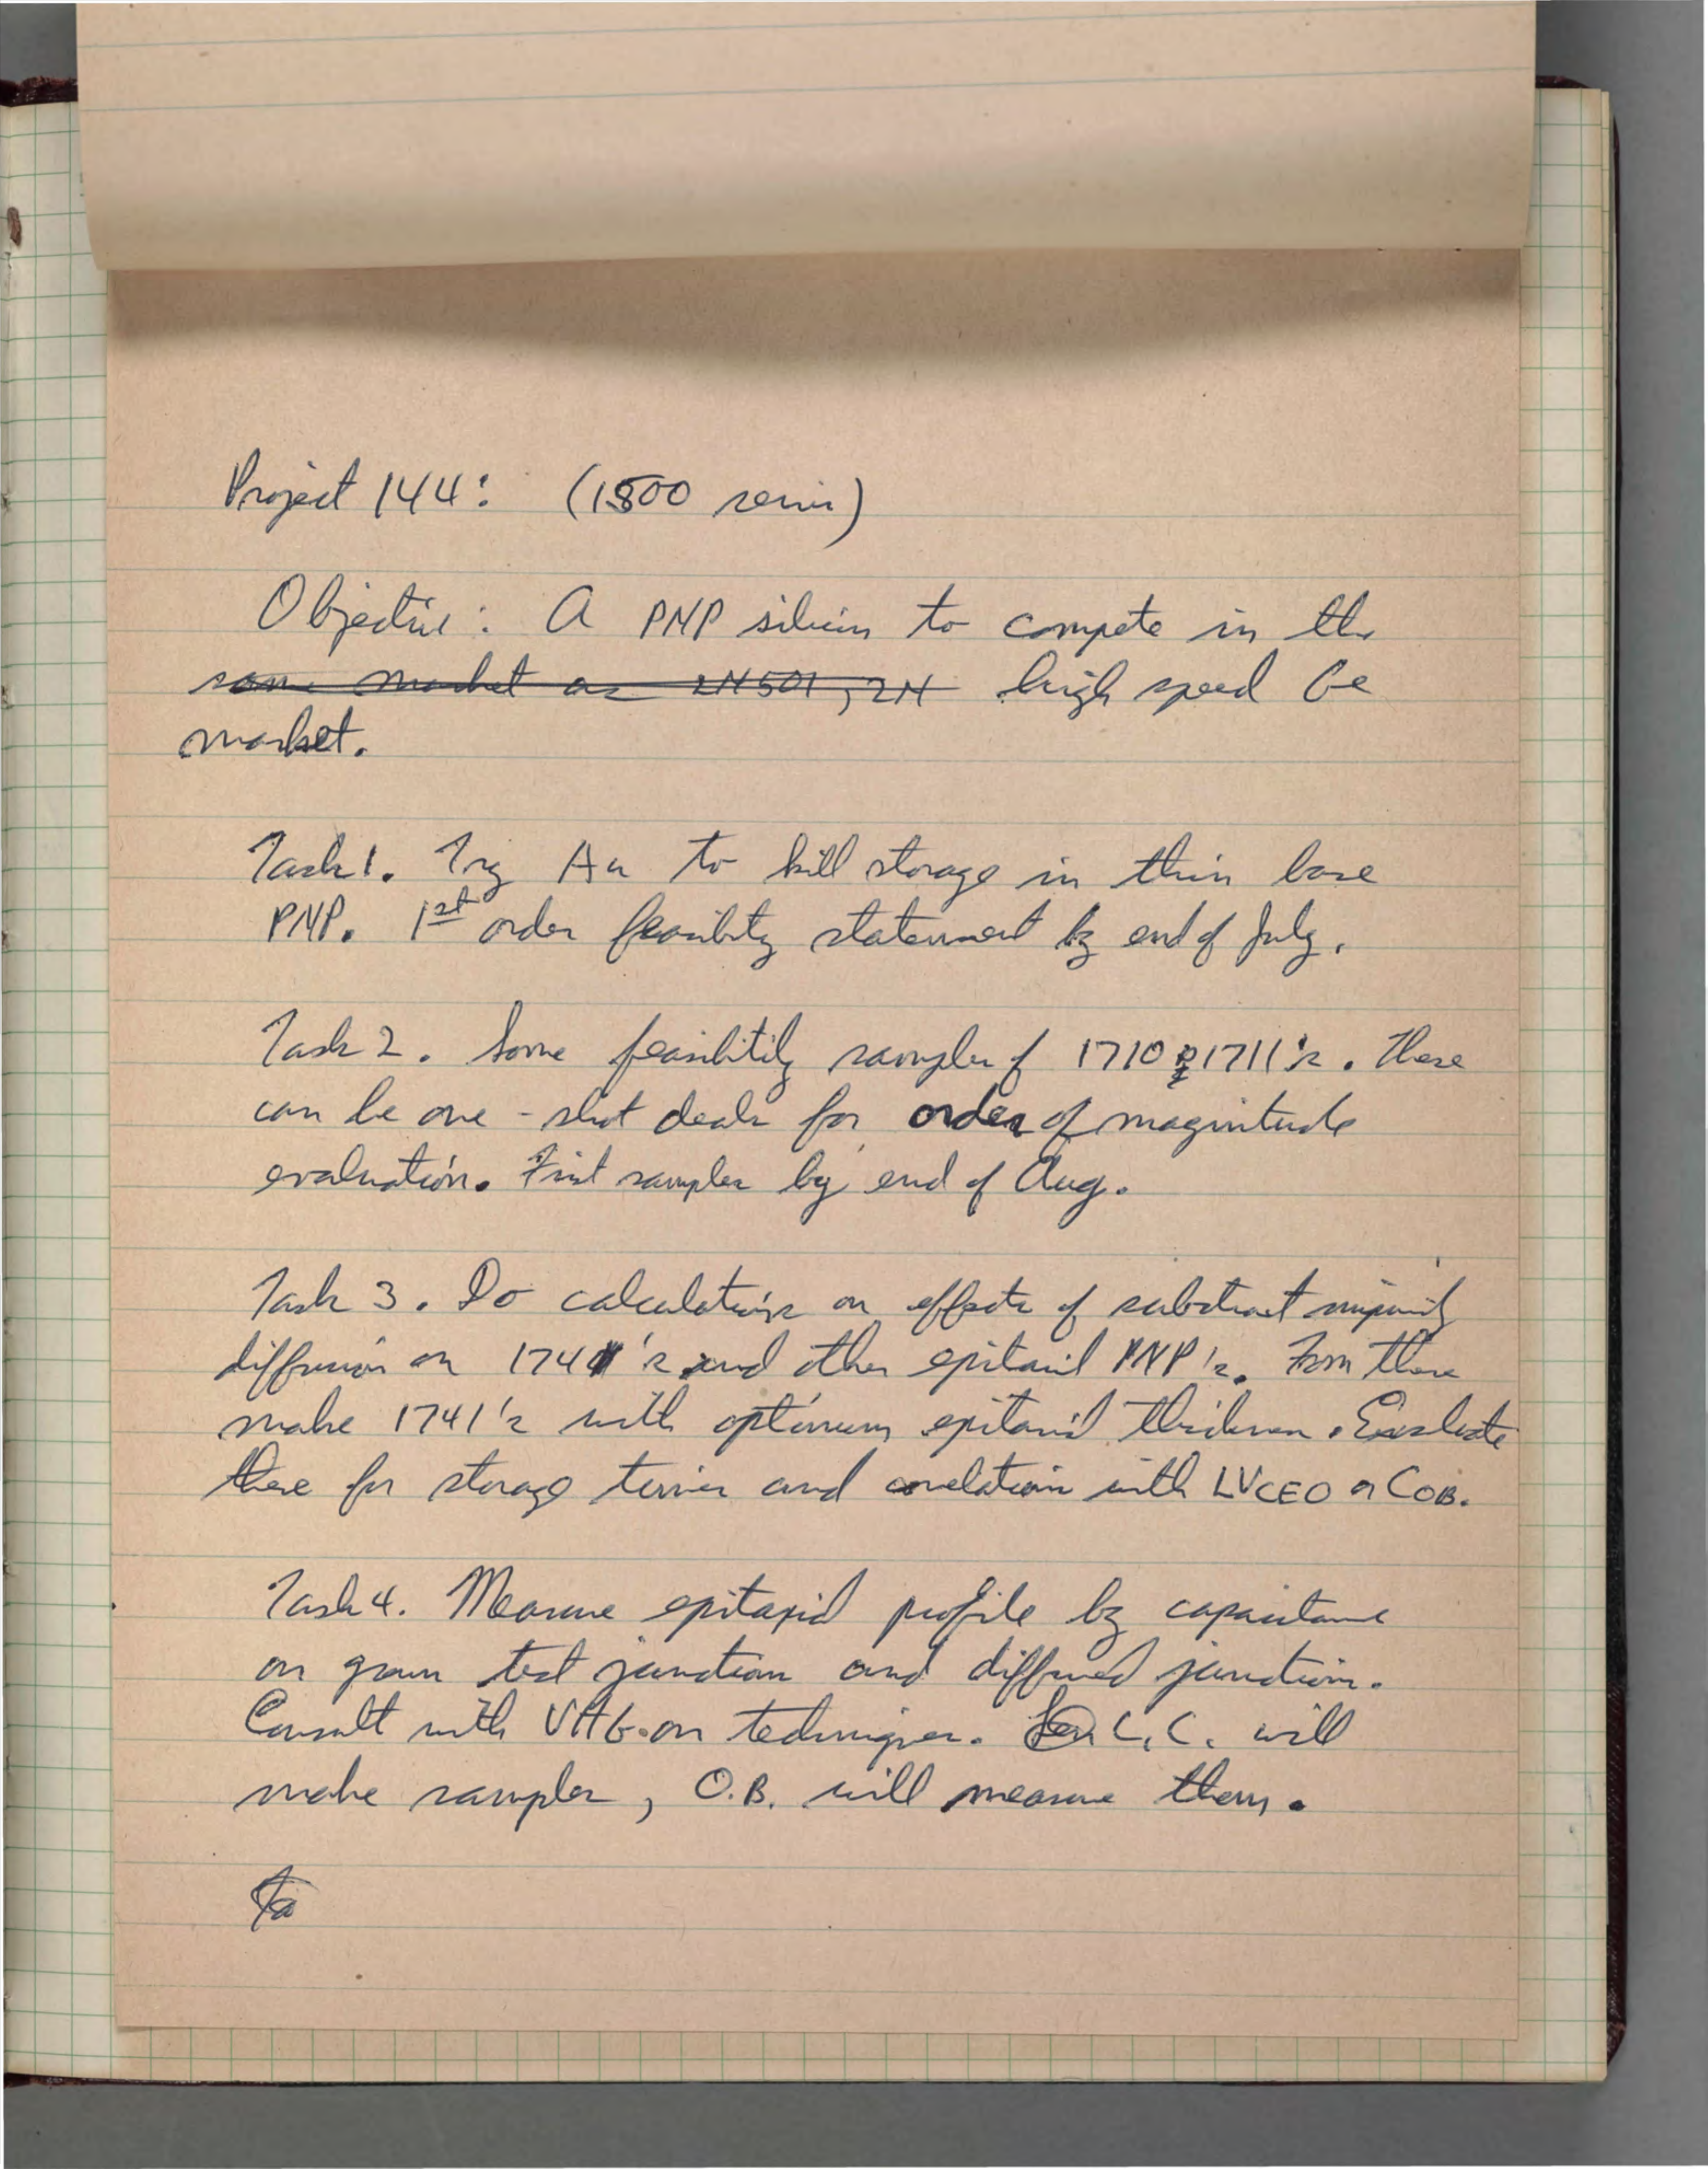 Project 144: (1800 series)
Objective: A PNP silicon to compete in the
same market as 2N501, 2N high speed Ge
market.
Task 1. Try Au to kill storage in thin base
PNP. 1st order feasibility statement by end of July.
Task 2. Some feasibility samples of 1710 & 1711's. These
can be one-shot deals for order of magnitude
evaluation. First samples by end of Aug.
Task 3. Do calculations on effects of substrate impurity
diffusion on 1741's and other epitaxial PNP's. From these
make 1741's with optimum epitaxial thickness. Evaluate
these for storage times and correlation with LVCEO or COB.
Task 4. Measure epitaxial profile by capacitance
on grown test junction and diffused junction.
Consult with VHG on techniques. L.C. will
make samples, O.B. will measure them.